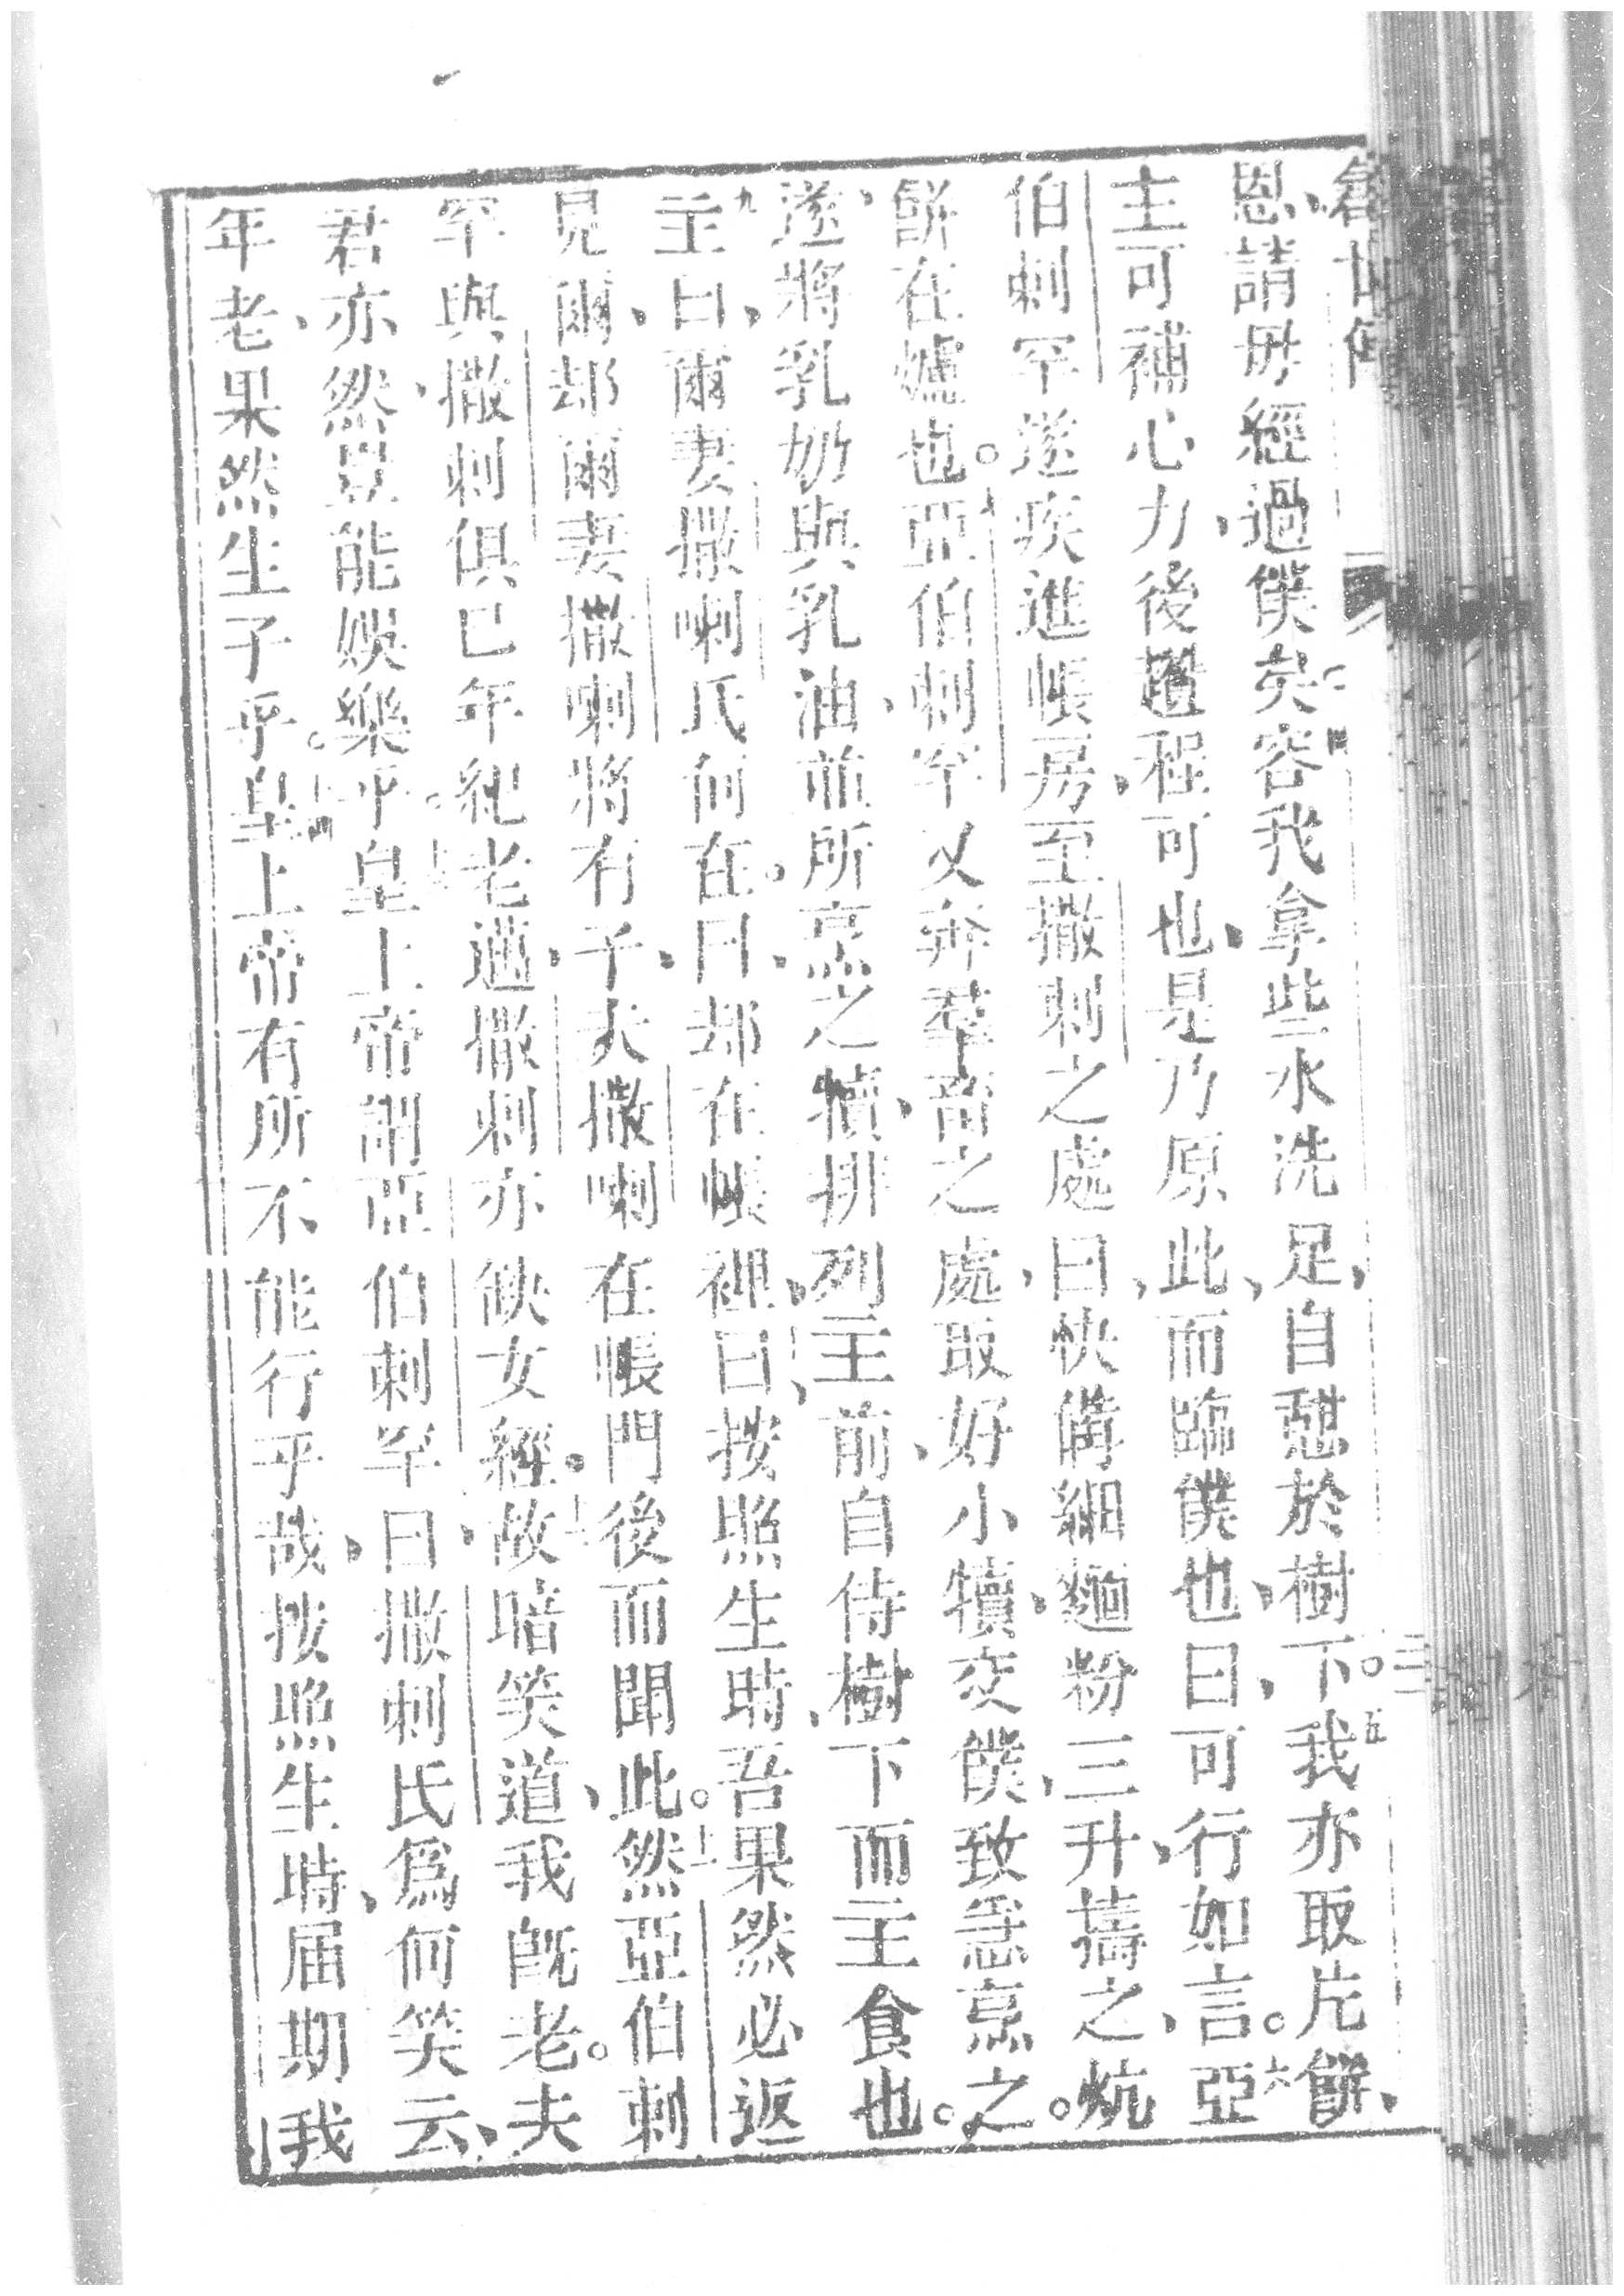 恩、請毋經過僕矣容我拿些水洗足、自憇於樹下。五我亦取片餠、
主可補心力、後趲程可也、是乃原此、而臨僕也、曰、可行如言。六亞
伯剌罕遂疾進帳房、至撒剌之處、曰、快備細麵粉三升、擣之、炕
餠在爐也。亞伯剌罕又奔羣畜之處、取好小犢、交僕、致急烹之。
遂、將乳奶與乳油、並所烹之犢、排列主前、自侍樹下而主食也。
九主曰、爾妻撒喇氏何在。曰、却在帳裡、曰、按照生時、吾果然必返
見爾、却爾妻撒喇將有子、夫撒喇在帳門後而聞此。然亞伯剌
罕與撒剌俱已年紀老邁、撒剌亦缺女經。故暗笑道、我旣老。夫
君亦然、豈能娛樂乎。皇上帝謂亞伯剌罕曰、撒剌氏爲何笑云、
年老、果然生子乎。皇上帝有所不能行乎哉、按照生時、届期我